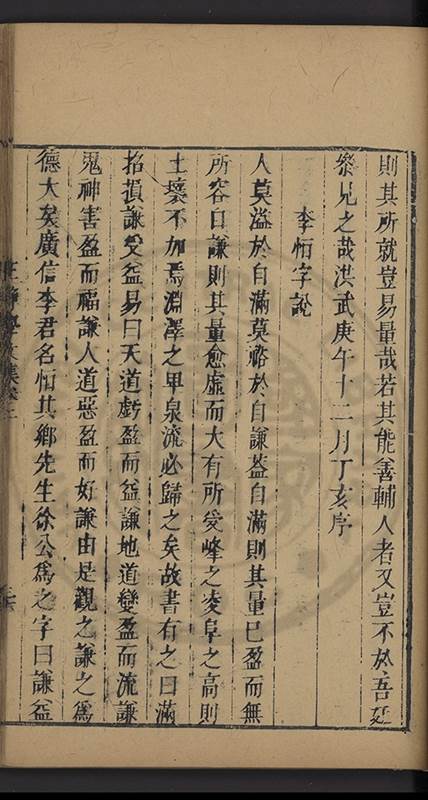 則其所就豈易量哉若其能善輔人者又豈不於吾廷
粲見之哉洪武庚午十二月丁亥序
李恒字說
人莫溢於自滿莫裕於自謙葢自滿則其量已盈而無
所容自謙則其量愈虛而大有所受峰之凌阜之高則
土壤不加焉淵澤之卑泉流必歸之矣故書有之曰滿
招損謙受益易曰天道虧盈而益謙地道變盈而流謙
鬼神害盈而福謙人道惡盈而好謙由是觀之謙之爲
德大矣廣信李君名恒其鄉先生徐公爲之字曰謙益